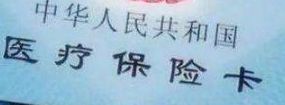 中华人民共和国
医疗保险卡